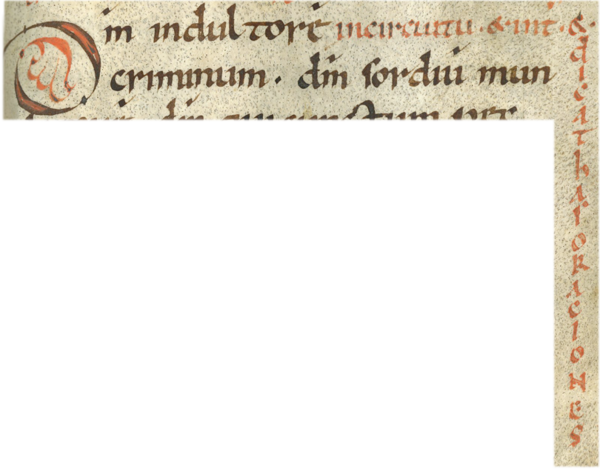 Dm indultorē incircuitu &int. &
criminum. dm sordiū mun
dicat has ORACIONES